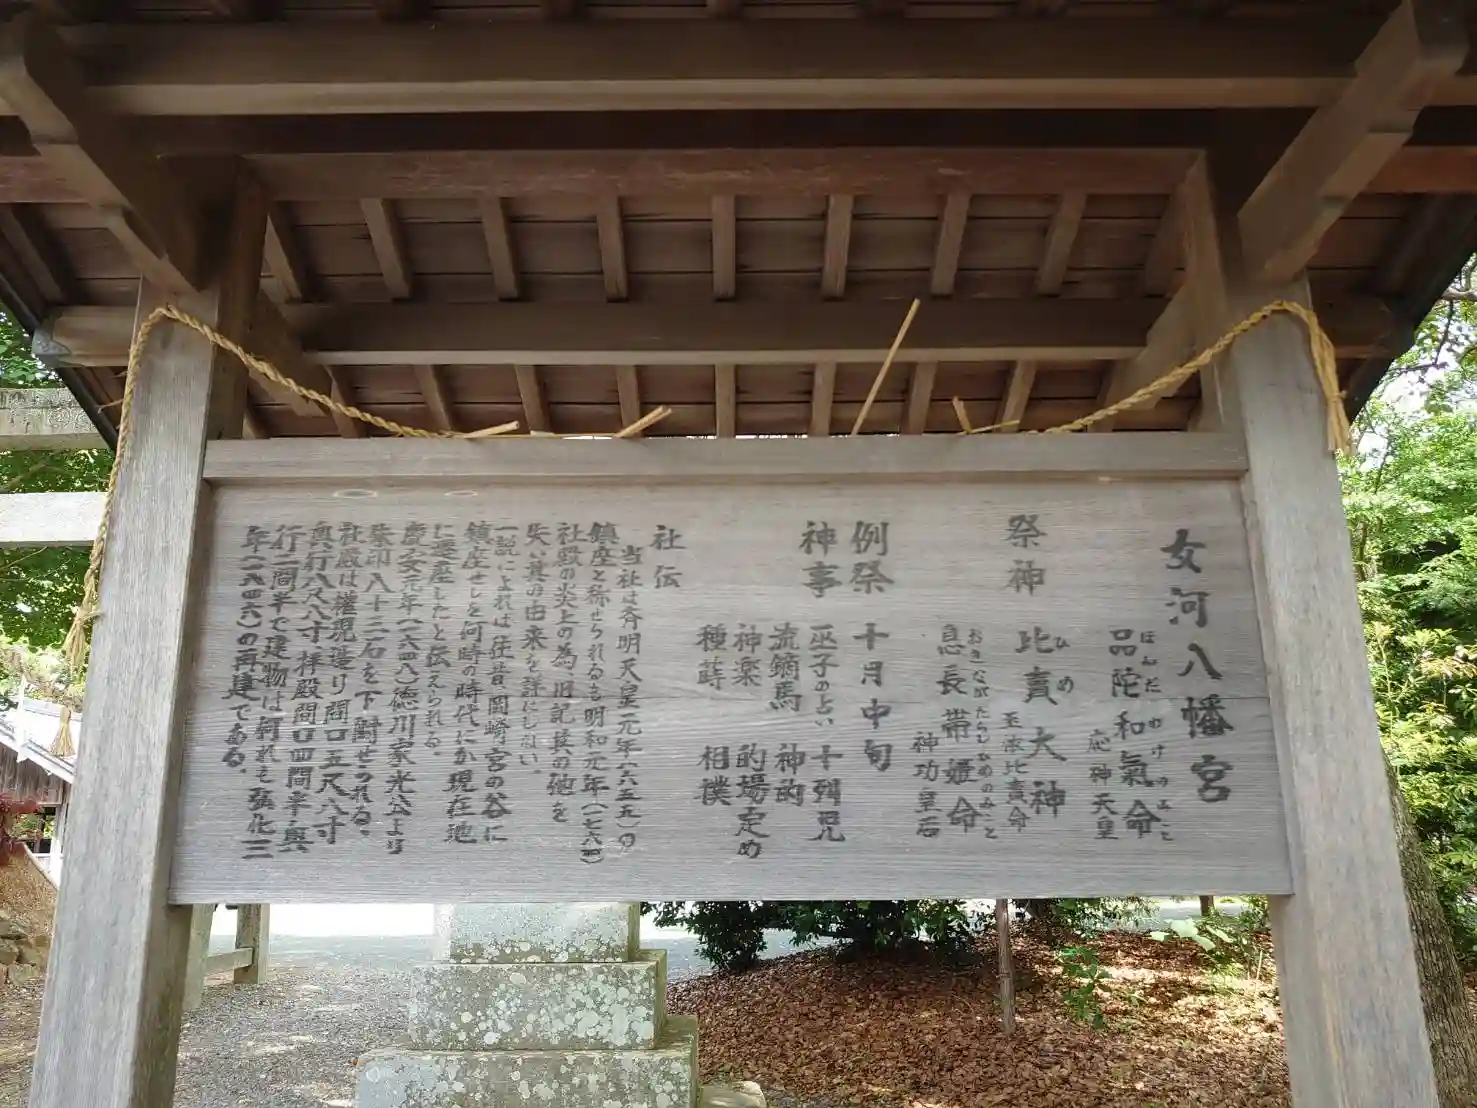 女河八幡宮
品陀和氣命
ほんだわけのみこと
応神天皇
祭神 比賣大神
ひめ
玉依比賣命
息長帯姫命
おきながたらしひめのみこと
神功皇后
例祭 十月中旬
神事 巫子のまい 十列児
流鏑馬 神的
神楽 的場定め
種蒔 相撲
社伝
当社は斉明天皇元年(六五五)の
鎮座と称せられるも明和元年(一七六四)
社殿の炎上の為、旧記技の他を
失い其の由来を詳にしない。
一説によれば往昔、岡崎、宮の谷に
鎮座せしを何時の時代にか現在地
に遷座したと伝えられる。
慶安元年(一六四八)徳川家光公より
朱印八十二石を下附せられる。
社殿は権現造り間口五尺八寸
奥行八尺八寸、拝殿間口四間半、奥
行二間半で建物は何れも弘化三
年(一八四六)の再建である。